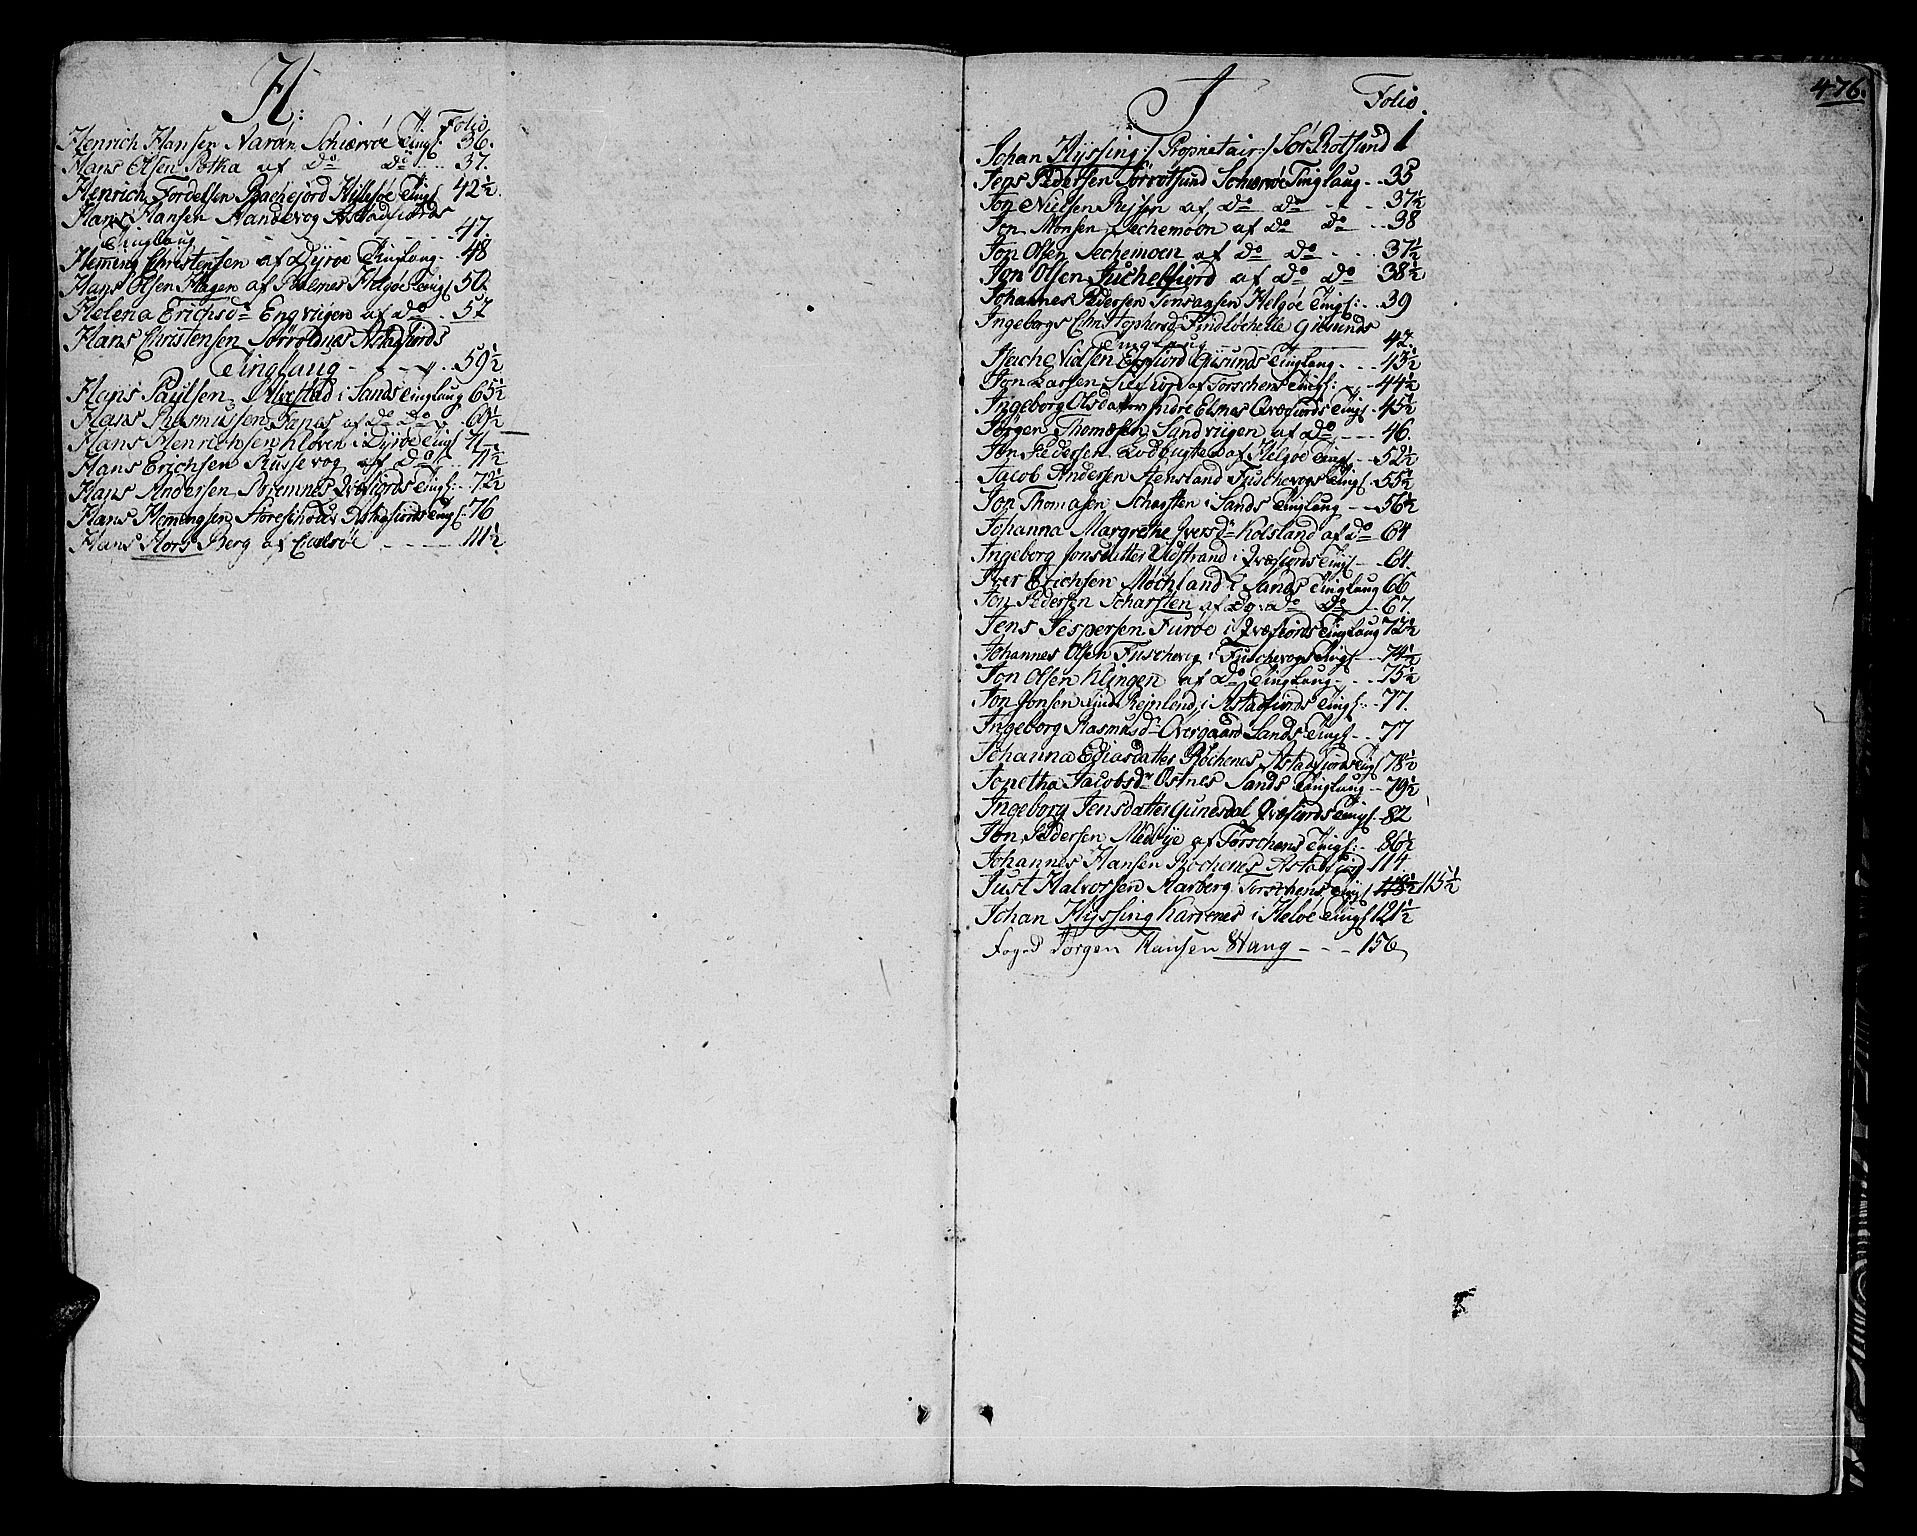 H:
Folio
Henrich Hansen Varøn Schiærvøe Tingl: 36.
Hans Olsen Potka af Do Do - - - 37.
Henrich Fordelsen Bachefjord Hillesøe Tingl 42½.
Hans Hansen Aandevog Astadfiords
Tinglaug - - - - - - 47.
Heming Christensen af Dyrøe Tinglaug - 48
Hans Olsen Hagen af Helgøe Tingl 50.
Helena Erichsdr Engviigen af do - 57
Hans Christensen Sørrolnes Astadfiords
Tinglaug - - - - 59½
Hans Paulsen Alvestad i Sands Tinglaug 65½
Hans Rasmussen Fanes af do Do - 69½
Hans Henrichsen Kløven i Dyrøe Tingl 71 -
Hans Erichsen Russevog af Do - - 71½
Hans Andersen Strømnes Qvæfiords Tingl: - 72½
Hans Hemingsen Astafiords Tingl - 76
Hans Hors Berg af - - - - - 111½
476.
J
Folio.
Johan Hyssing :/ Proprietair :/ Sør Rotsund 1
Jens Pedersen Sørrotsund Schiærvøe Tinglaug - - 35
Jon Nielsen af Do Do - - - 37½
Jon Monsen Sechemoen af Do Do - - 38
Jon Olsen Sechemoen af Do Do - - - 37½
Jon Olsen Jøchelfiord af Do Do 38½
Johannes Pedersen Helgøe Tingl: - 39
Ingeborg Christophersd Gisunds
Tinglaug - - - - 42.
Nielsen Gisunds Tinglaug - - - 43½
Jon Larsen af Torschens Tingl: - - 44½
Ingeborg Olsdatter Indre Elsnes Qvæfiords Tingl - 45½
Jørgen Thomæsen Sandviigen af Do - - - 46.
Jon Pedersen af Helgøe Tingl - - 52½
Jacob Andersen Stensland Fuschevogs Tingl. 55½
Jon Thomasen Scharsten i Sands Tinglaug - - 56½
Johanna Margrethe Iversdr Kolsland af Do 64
Ingeborg Jonsdatter Vidstrand i Qvæfiords Tingl - - 64.
Iver Erichsen Møchland i Sands Tinglaug 66
Jon Pedersen Scharsten af Do Do - 67.
Jens Jespersen Furøe i Qvæfiords Tinglaug 72½
Johannes Olsen Fuschevog i Fuschevogs Tingl - - 74½
Jon Olsen Klingen af Do Tinglaug - - - 75½
Jon Jonsen i Astadfiords Tingl: - 77.
Ingeborg Rasmusdr Overgaard Sands Tingl - - 77
Johanna Eliasdatter Rochenes Astadfiords Tingl 78½
Jonetha Jacobsdr Ostnes Sands Tinglaug - - 79½
Ingeborg Jensdatter Gunesdal Qvæfiords Tingl - 82
Jon Pedersen Medbye af Torschens Tingl: - 86½
Johannes Hansen Rochenes Astafiord 114.
Just Halvorsen Torschens Tingl 115½
Johan Hyssing Karrenes i Helgøe Tingl 121½
Foged Jørgen Hansen Wang - - - 156.